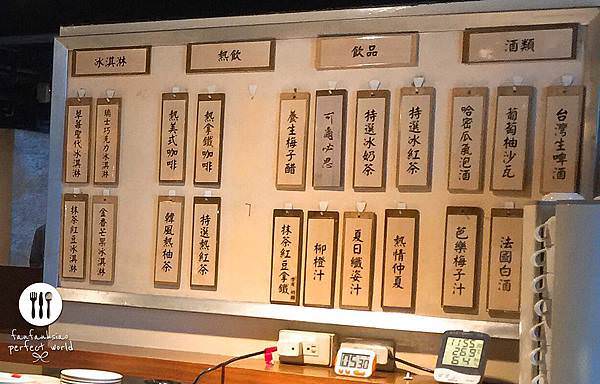 冰淇淋
熱飲
飲品
酒類
草莓聖代冰淇淋
瑞士巧克力冰淇淋
熱美式咖啡
熱拿鐵咖啡
養生梅子醋
可爾必思
特選冰奶茶
特選冰紅茶
哈密瓜氣泡酒
葡萄柚沙瓦
台灣生啤酒
抹茶紅豆冰淇淋
金香芒果冰淇淋
韓風熱柚茶
特選熱紅茶
抹茶紅豆拿鐵
柳橙汁
夏日纖姿汁
熱情仲夏
芭樂梅子汁
法國白酒
fanfanhsiao
perfect world
05:30
11:55
26.9
64